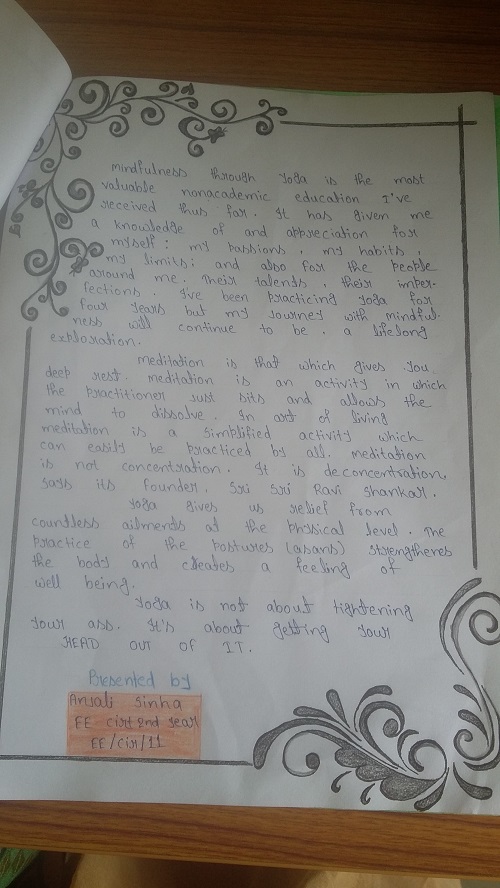 mindfulness through yoga is the most
valuable nonacademic education I've
received thus far. It has given me
a knowledge of and appreciation for
myself: my passions, my habits,
my limits; and also for the people
around me. Their talents, their imper-
fections. I've been practicing yoga for
four years but my journey with mindful-
ness will continue to be. a lifelong
exploration.
meditation is that which gives you
deep rest. meditation is an activity in which
the practitioner just sits and allows the
mind to dissolve. In art of living
meditation is a simplified activity which
can easily be practiced by all. meditation
is not concentration. It is deconcentration,
says its founder, Sri Sri Ravi Shankar.
Yoga gives us relief from
countless ailments at the physical level. The
practice of the postures (asans) strengtheres
the body and creates a feeling of
well being.
Yoga is not about tightening
your ass. It's about getting your
HEAD out of IT.
Presented by
Anjali Sinha
EE 2nd year
EE/